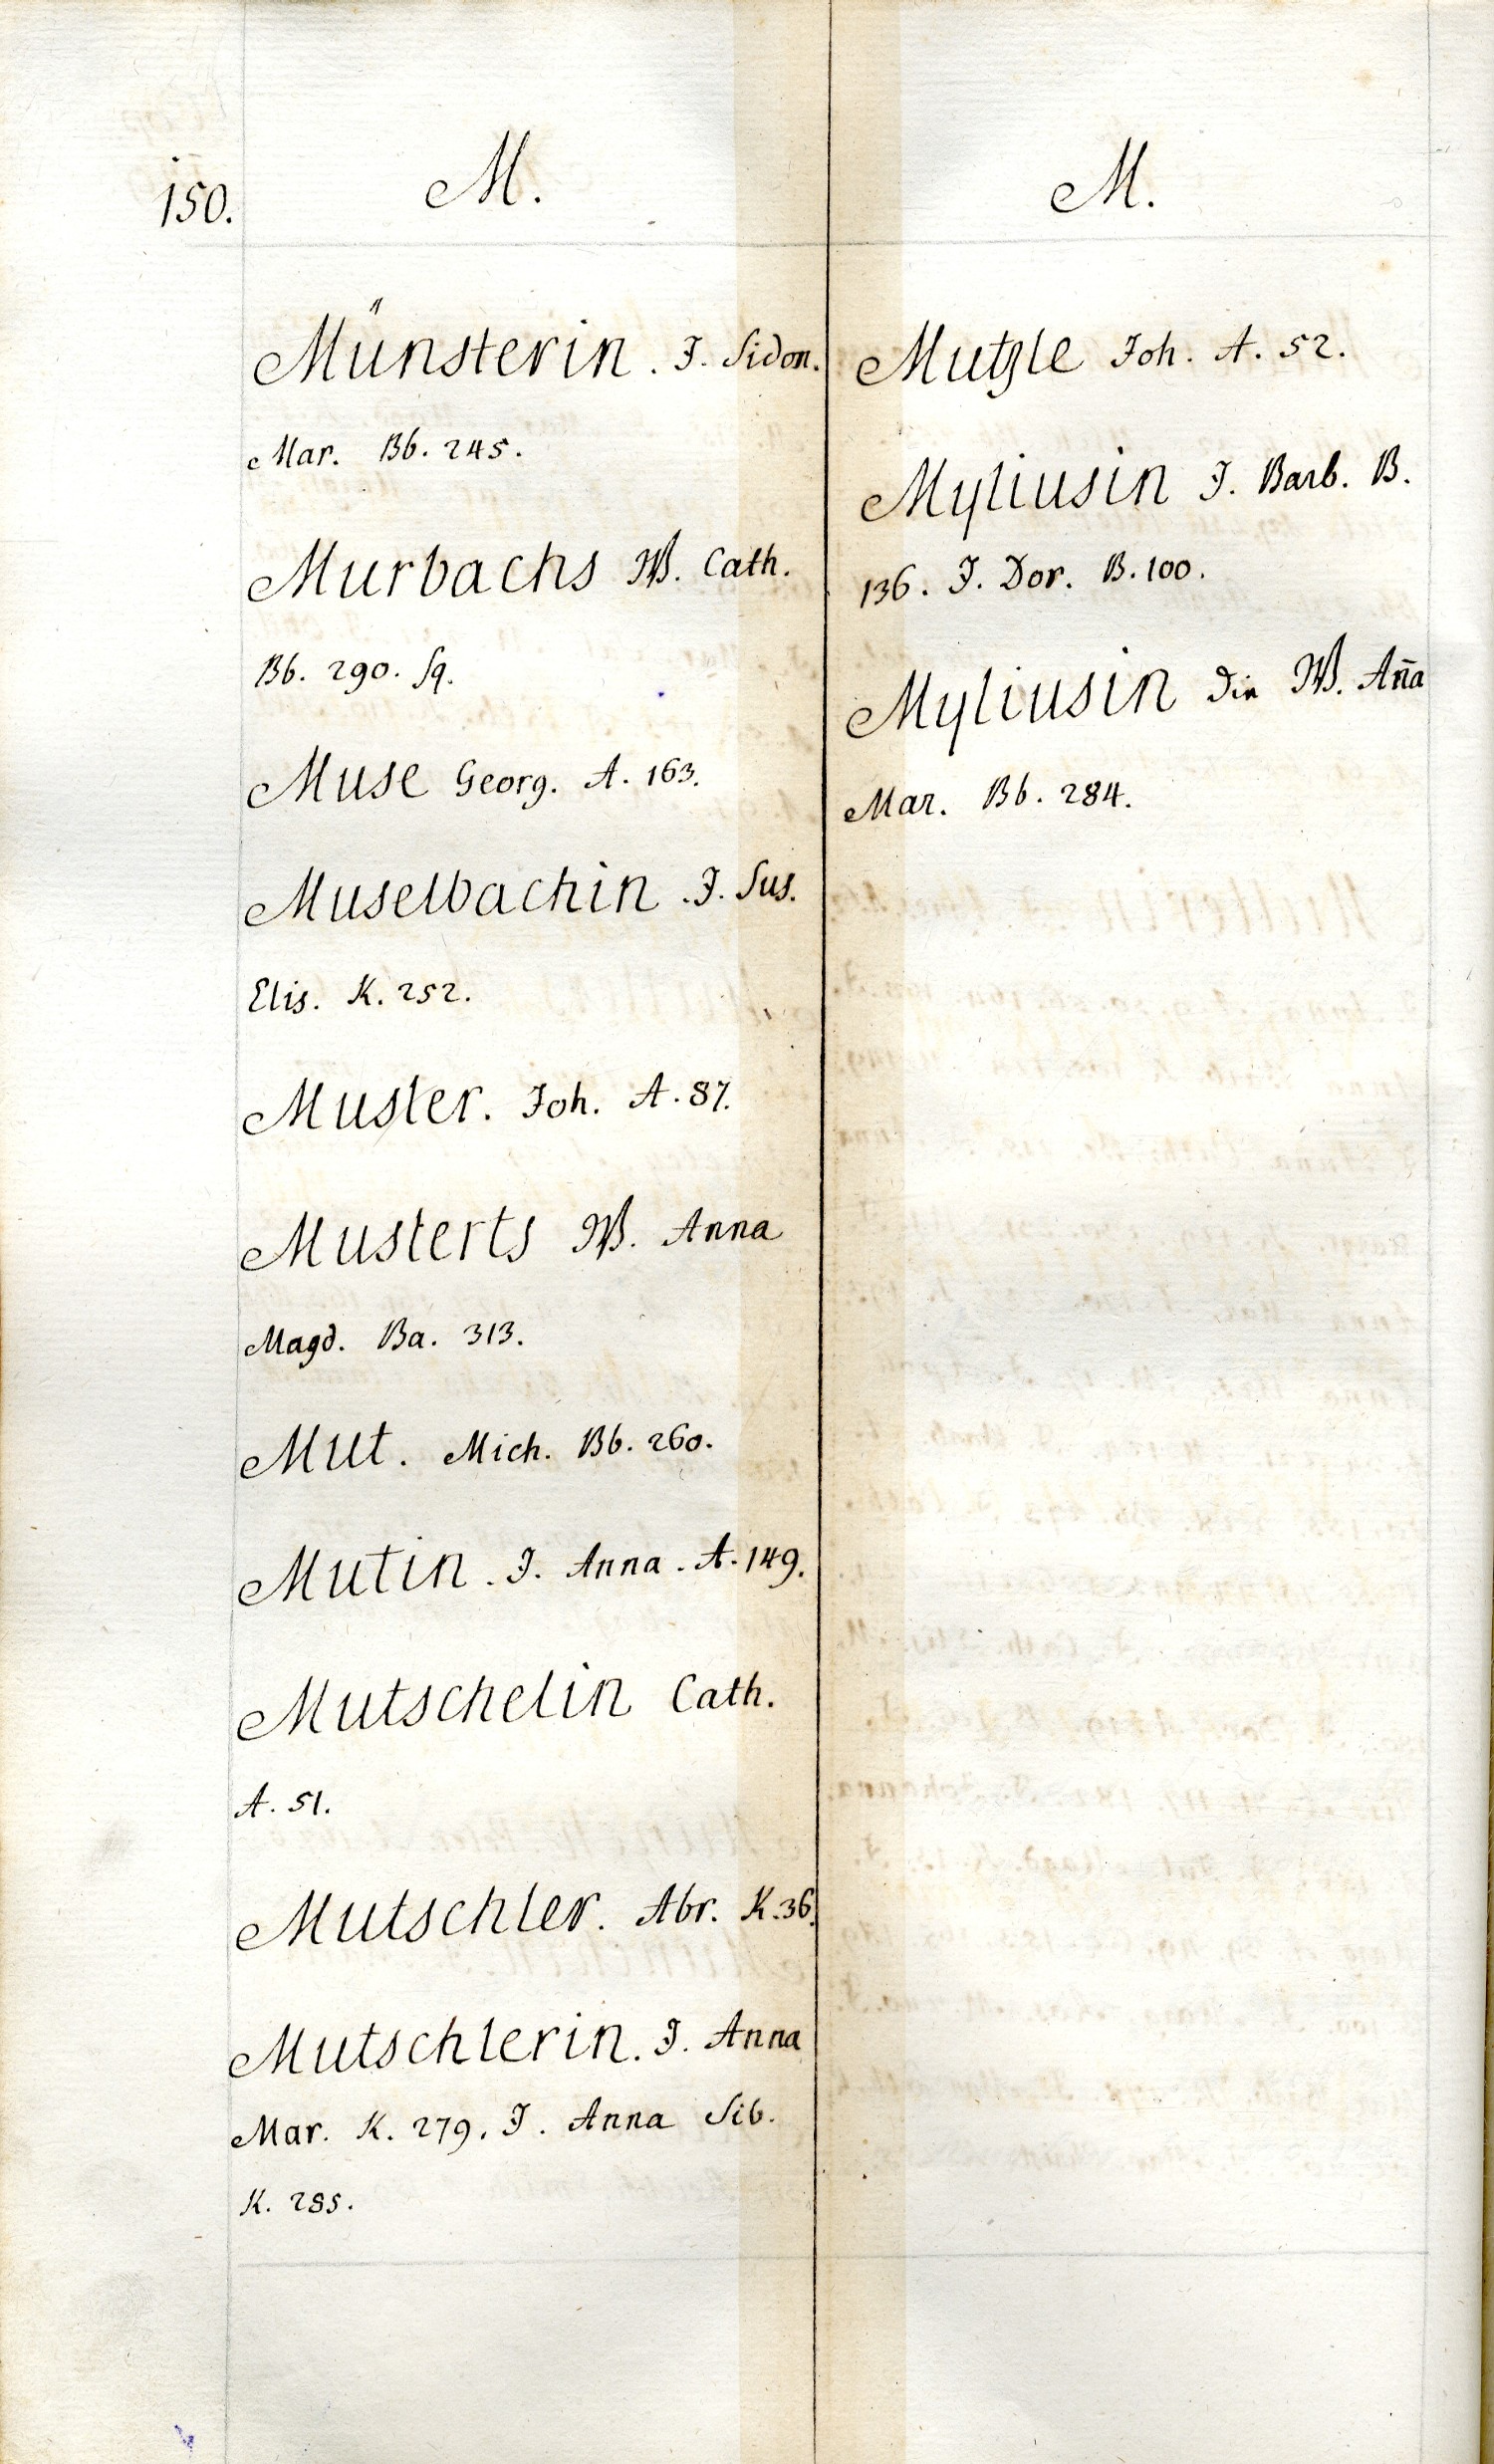 150.
M.
Münsterin. J. Sidon.
Mar. Bb. 245.
Murbachs W. Cath.
Bb. 290. sq.
Muse Georg. A. 163.
Muselbachin. J. Sus.
Elis. K. 252.
Muster. Joh. A. 87.
Musterts W. Anna
Magd. Ba. 313.
Mut. Mich. Bb. 260.
Mutin. J. Anna. A. 149.
Mutschelin Cath.
A. 51.
Mutschler. Abr. K. 36.
Mutschlerin. J. Anna
Mar. K. 279. J. Anna Sib.
K. 285.
M.
Mutzle Joh. A. 52.
Myliusin J. Barb. B.
136. J. Dor. B. 100.
Myliusin die W. Aña
Mar. Bb. 284.